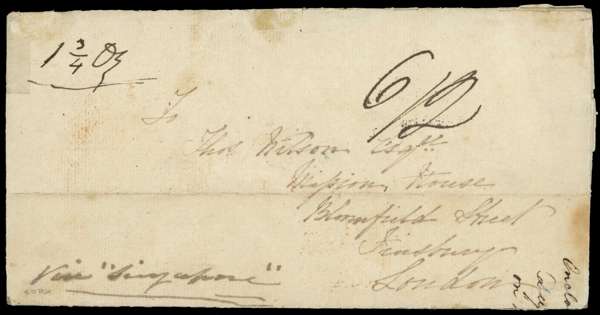 1 3/4 Oz
6/2
To
Thos Wilson Esqre
Mission House
Blomfield Street
Finsbury
London
Via "Singapore"